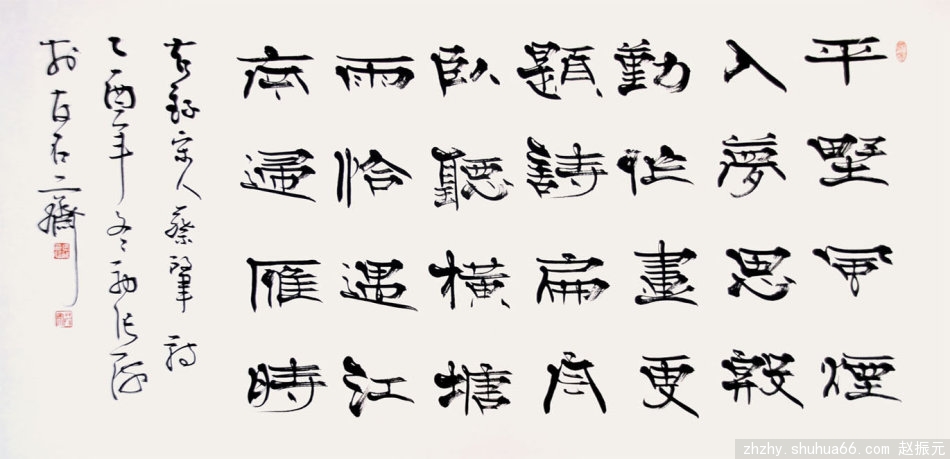 平野風煙
入夢思殷
勤作畫更
題詩扁舟
臥聽橫塘
雨恰遇江
南歸雁時
錄宋人蔡肇詩
乙酉年冬
於石二齋
zhzhy.shuhua66.com 赵振元